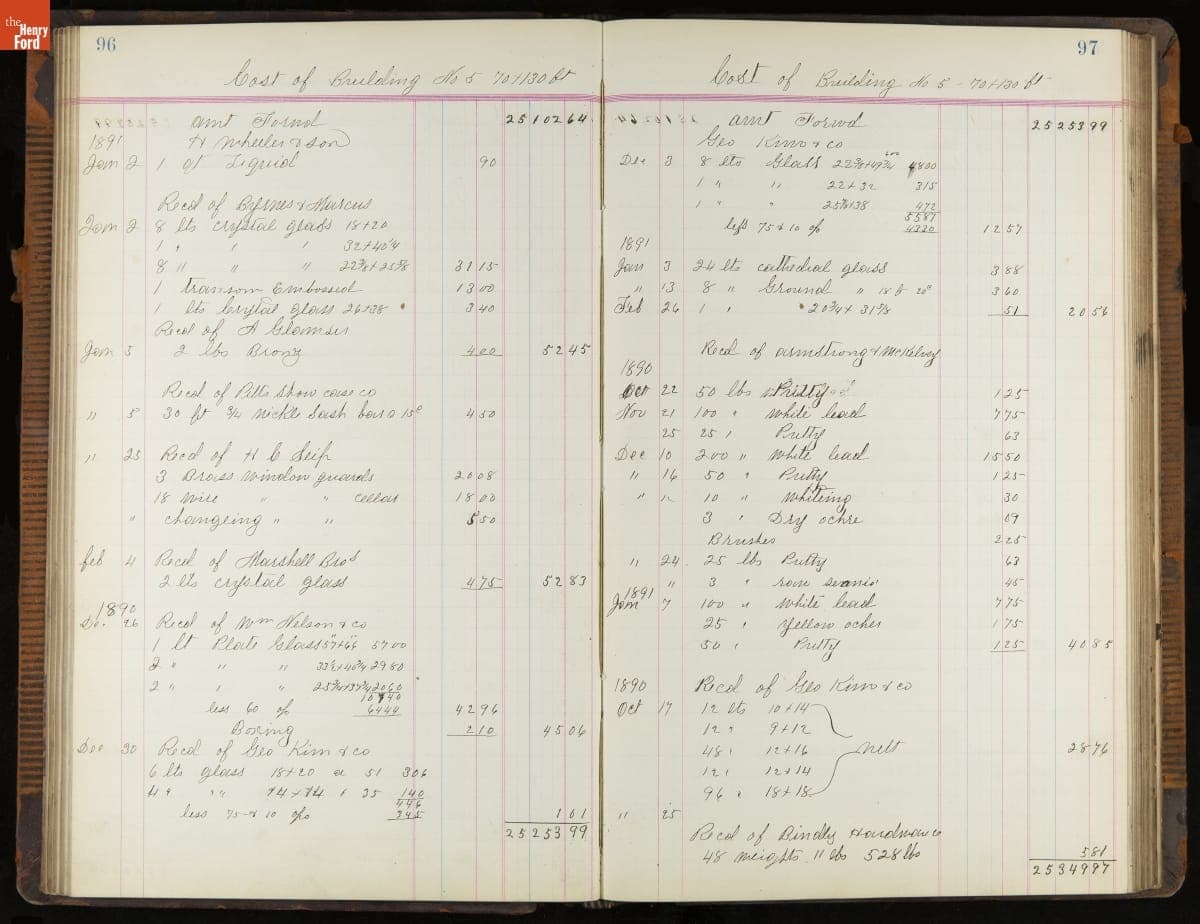 the Henry Ford
96
Cost of Building No 5 70+130 ft
amt Forwd 25102 64
1891 H Wheeler & Son
Jan 2 1 qt Liquid 90
Recd of Byrnes & Marcus
Jan 2 8 lts crystal glass 18+20
1 " " " 32+40¼
8 " " " 22⅜+25⅝ 31 15
1 transom Embossed 13 00
1 lts Crystal glass 26+38 3 40
Recd of A Glamser
Jan 5 2 lbs Bronz 4 00 52 45
Recd of Pitts Show case co
" 5 30 ft ¾ nickle Sash bar @ 15c 4 50
" 25 Recd of H C Seip
3 Brass window guards 20 08
18 wire " " cellar 18 00
" changeing " " 5 50
feb 4 Recd of Marshell Bros
2 lts crystal glass 4 75 52 83
1890
De. 26 Recd of Wm Nelson & co
1 lt Plate Glass 57"+66" 57 00
2 " " " 33½+40¾ 29 80
2 " " " 25¾+37¾ 20 60
107 40
less 60 % 64 44 42 96
Boxing 2 10 45 06
Dec 30 Recd of Geo Kim & co
6 lts glass 18+20 a 51 306
4 " " 14+14 " 35 140
446
less 75 & 10 % 345 1 01
25253 99
97
Cost of Building No 5 - 70+130 ft
amt Forwd 25253 99
Geo Kim & co
Dec 3 8 lts Glass 22⅜+49¾ 600 4800
1 " " 22+32 315
1 " " 25⅞+38 472
5587
less 75 & 10 % 4330 12 57
1891
Jan 3 24 lts cathedral glass 3 88
" 13 8 " Ground " 18 & 20c 3 60
Feb 26 1 " " 20¾+31⅝ 51 20 56
Recd of Armstrong & McKelvey
1890
Oct 22 50 lbs Putty 1 25
Nov 21 100 " white lead 7 75
25 25 " Putty 63
Dec 10 200 " white lead 15 50
" 16 50 " Putty 1 25
" " 10 " Whiteing 30
3 " Dry ochre 09
Brushes 2 25
" 24 25 lbs Putty 63
" 3 " raw 45
1891
Jan 7 100 " white lead 7 75
25 " Yellow ocher 1 75
50 " Putty 1 25 40 85
1890 Recd of Geo Kim & co
Oct 17 12 lts 10+14
12 " 9+12
48 " 12+16 nett 28 76
12 " 12+14
96 " 18+18
" 25
Recd of Bindly Hardware
48 weights 11 lbs 528 lbs 5 81
25349 97